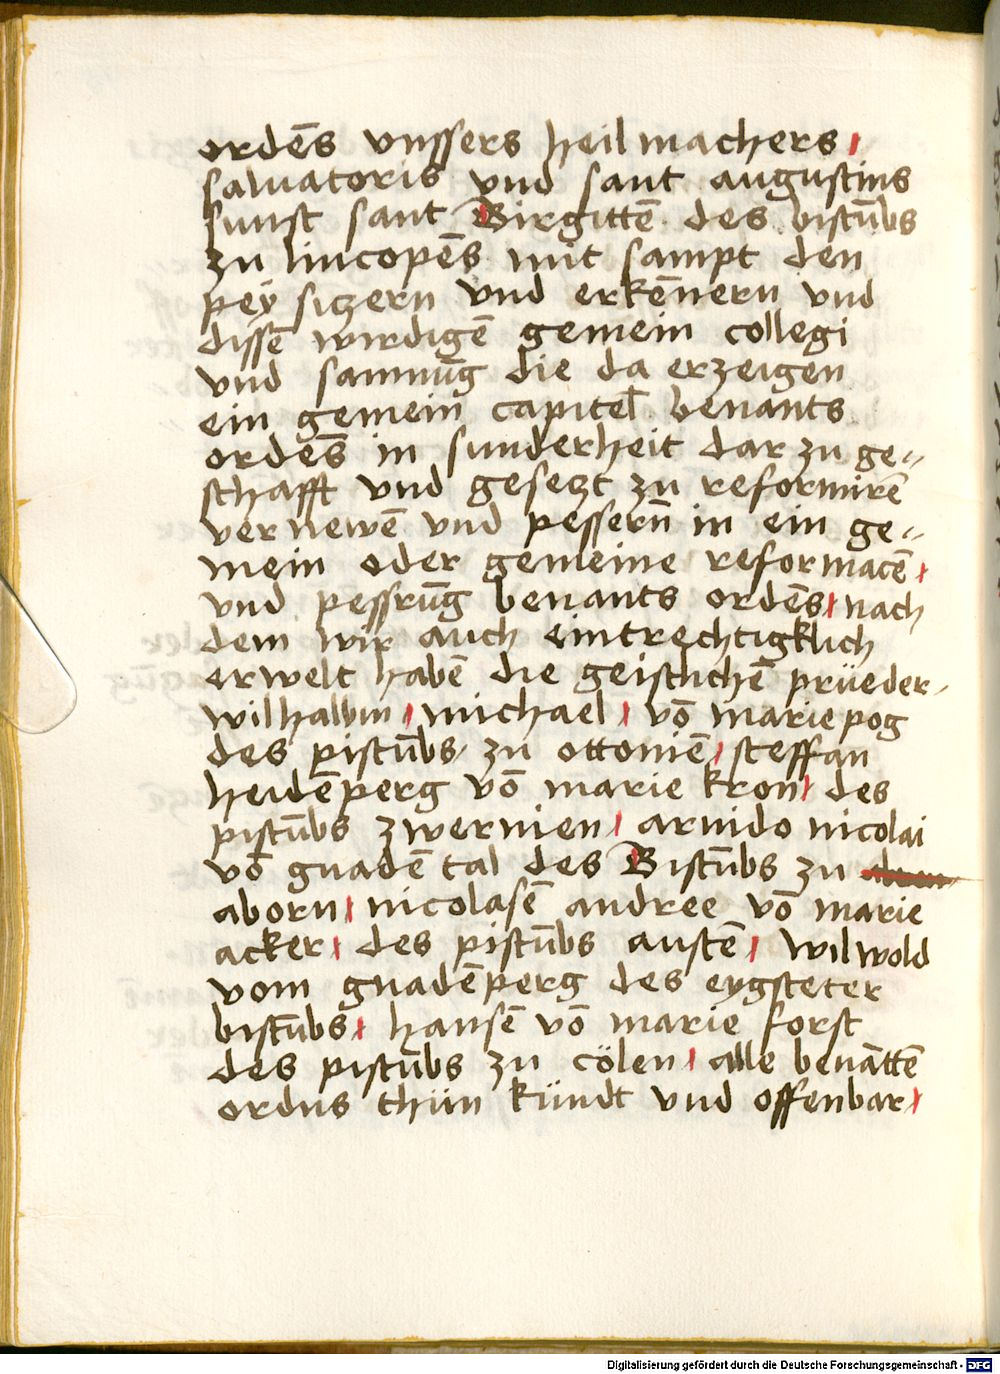 ordēs vnssers heilmachers
saluatoris vnd sant augustins
sunst sant Birgittē des bistūbs
zu lincopēs mit sampt den
peÿ siczern vnd erkēnern vnd
dissē wirdigē gemein collegi
vnd samnūg die da erzeigen
ein gemein capitel benants
ordēs in sunderheit dar zu ge=
schafft vnd gesetzt zu reformirē
vernewē vnd pessern̄ in ein ge=
mein oder gemeine reformacē
vnd pessrūg benants ordēs nach
dem wir auch eintrechtigklich
erwelt habē die geistlichē prüeder
wilhalbm michael vō marie pog
des pistūbs zu ottoniē steffan
heidēperg vō marie kron des
pistūbs zwernien arnido nicolai
vō gnadē tal des Bistūbs zu
aborn nicolasē andree vō marie
acker des pistūbs austē wilwold
vom gnadēperg des eygsteter
bistūbs hansē vō marie forst
des pistūbs zu cölen alle benātē
ordns thün kündt vnd offenbar
Digitalisierung gefördert durch die Deutsche Forschungsgemeinschaft - DFG